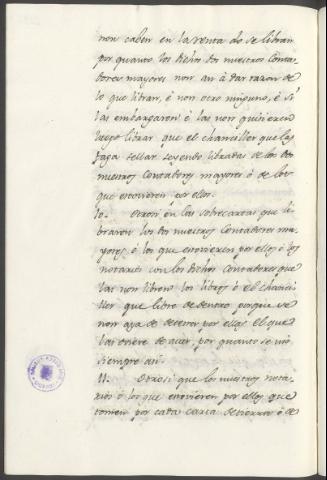 non caben en la renta do se libran
por quanto los dichos dos nuestros Conta-
dores mayores non an à dar razon de
lo que libran, è non otro ninguno, è si
las embargaren è las non quisieren
luego librar que el chanciller que las
faga sellar seyendo libradas de los dos
nuestros Contadores mayores ò de los
que estovieren por ellos.
10. Otrosi en las sobrecartas que li-
braren los dos nuestros Contadores ma-
yores, ò los que estovieren por ellos è los
notarios con los dichos Contadores que
las non libren los libros è el chanci-
ller que libre de dentro porque se
non aya de detener por ellas el que
las oviere de aver, por quanto se usó
siempre asi.
11. Otrosi que los nuestros nota-
rios ò los que estovieren por ellos que
tomen por cada carta de tierra è de